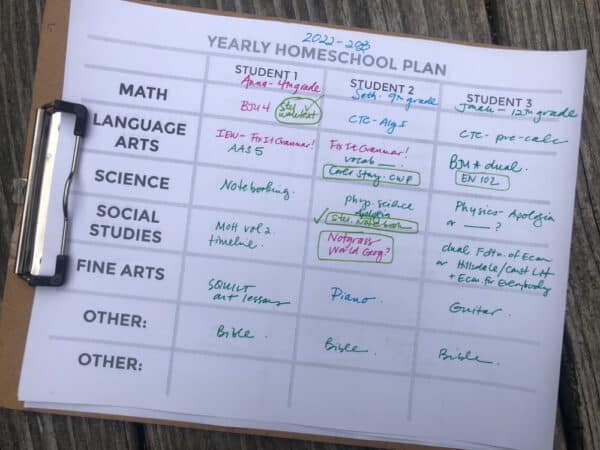 2022-2023
YEARLY HOMESCHOOL PLAN
STUDENT 1
STUDENT 2
STUDENT 3
Anna - 4th grade
Seth - 9th grade
12th grade
MATH
BJU 4
CTC - Alg I
CTC - pre-calc
LANGUAGE ARTS
IEW - Fix It Grammar!
AAS 5
Fix It Grammar!
vocab
CWP
BJU A dual.
EN 102
SCIENCE
Notebooking.
phys. science
Apologia
Notebook
Physics - Apologia
or ___?
SOCIAL STUDIES
MOH vol 2.
timeline.
Notgrass
World Geog?
dual Fdtn. of Econ
or Hillsdale/Const Lit
+ Econ for Everybody
FINE ARTS
SQUILT
art lessons
Piano.
Guitar.
OTHER:
Bible.
Bible.
Bible.
OTHER: